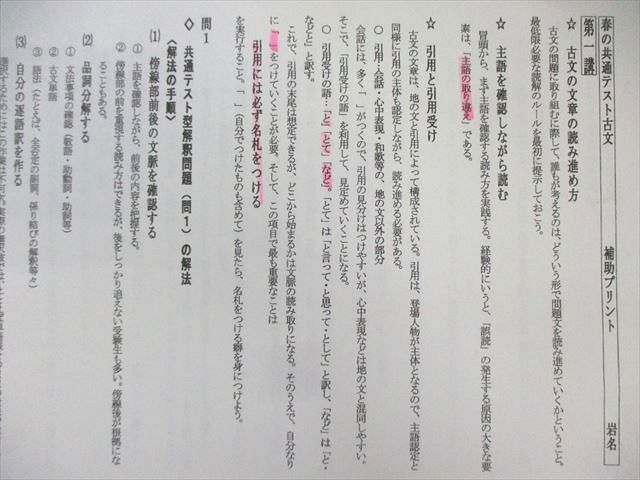 春の共通テスト古文　補助プリント　岩名
第一講
☆ 古文の文章の読み進め方
古文の問題に取り組むに際して、誰もが考えるのは、どういう形で問題文を読み進めていくかということ。
最低限必要な読解のルールを最初に提示しておこう。
☆ 主語を確認しながら読む
冒頭から、まず主語を確認する読み方を実践する。経験的にいうと、「誤読」の発生する原因の大きな要
素は、「主語の取り違え」である。
☆ 引用と引用受け
古文の文章は、地の文と引用によって構成されている。引用は、登場人物が主体となるので、主語認定と
同様に引用の主体も認定しながら、読み進める必要がある。
○ 引用…会話・心中表現・和歌等の、地の文以外の部分
会話には、多く「　」がつくので、引用の見分けはつけやすいが、心中表現などは地の文と混同しやすい。
そこで、「引用受けの語」を利用して、見定めていくことになる。
○ 引用受けの語…「と」「とて」「など」。「とて」は「と言って・と思って・として」と訳し、「など」は「と・
などと」と訳す。
これで、引用の末尾は想定できるが、どこから始まるかは文脈の読み取りになる。そのうえで、自分なり
に「　」をつけていくことが必要。そして、この項目で最も重要なことは
引用には必ず名札をつける
を実行すること。「　」（自分でつけたものも含めて）を見たら、名札をつける癖を身につけよう。
問1
◇ 共通テスト型解釈問題（問1）の解法
〈解法の手順〉
(1) 傍線部前後の文脈を確認する
① 主語を確認しながら、前後の内容を把握する。
② 傍線部の前を重視する読み方はできるが、後をしっかり追えない受験生も多い。傍線後が根拠にな
ることもある。
(2) 品詞分解する
① 文法事項の確認（敬語・助動詞・助詞等）
② 古文単語
③ 語法（たとえば、全否定の副詞、係り結びの解釈等々）
(3) 自分の逐語訳を作る